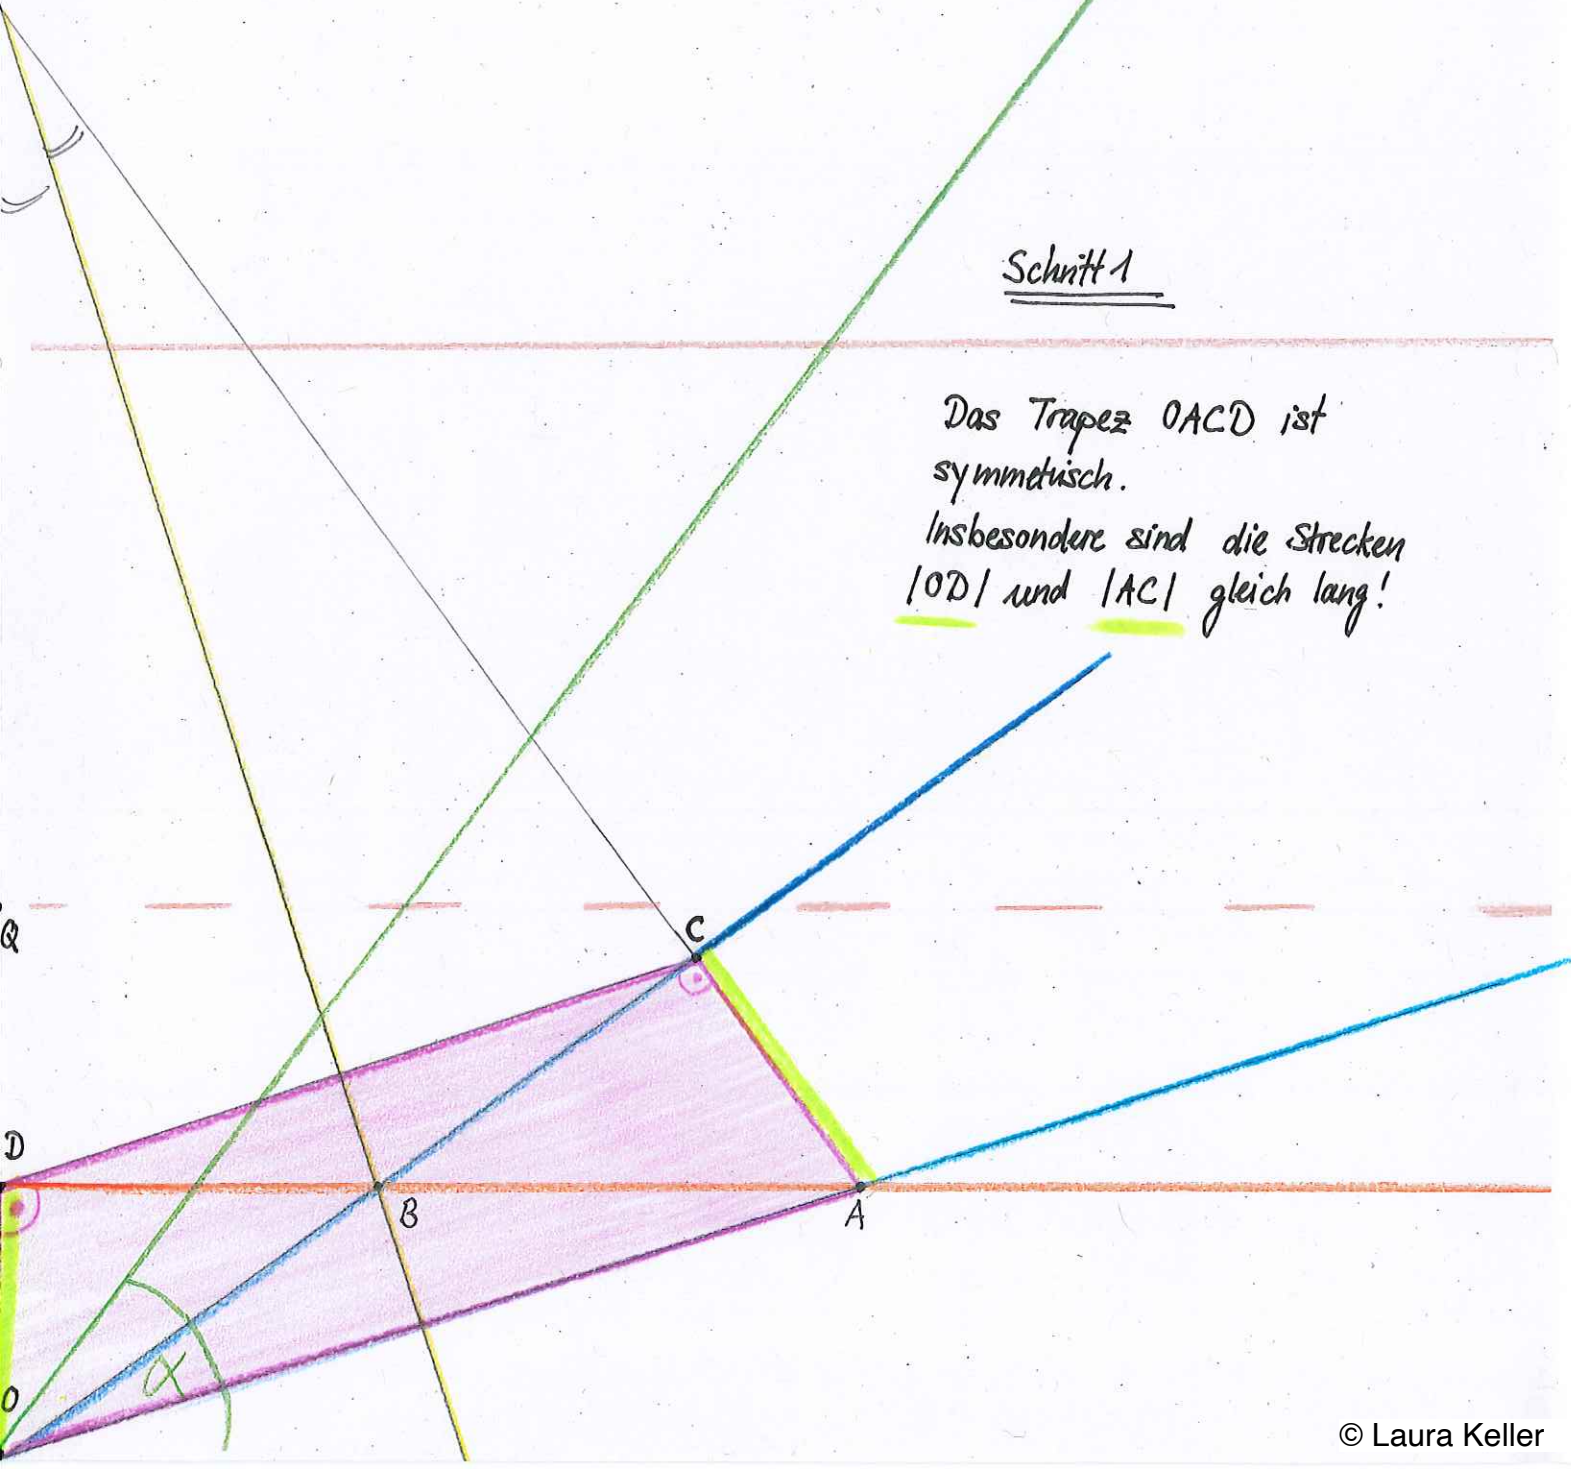 Schritt 1
Das Trapez OACD ist
symmetrisch.
Insbesondere sind die Strecken
|OD| und |AC| gleich lang!
C
Q
D
B
A
α
O
© Laura Keller